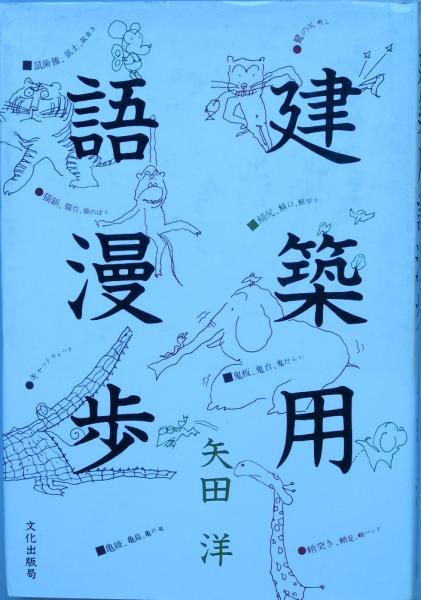 建築用
語漫歩
矢田 洋
文化出版局
■鼠歯錐、鼠土、鼠鳴き
●猫鋲、猫台、猫のぼり
■鯖尻、鯖口、鯖切り
●キャットウォーク
■鬼板、鬼台、鬼だらい
■亀綾、亀島、亀の尾
●蛸突き、蛸足、蛸バンド